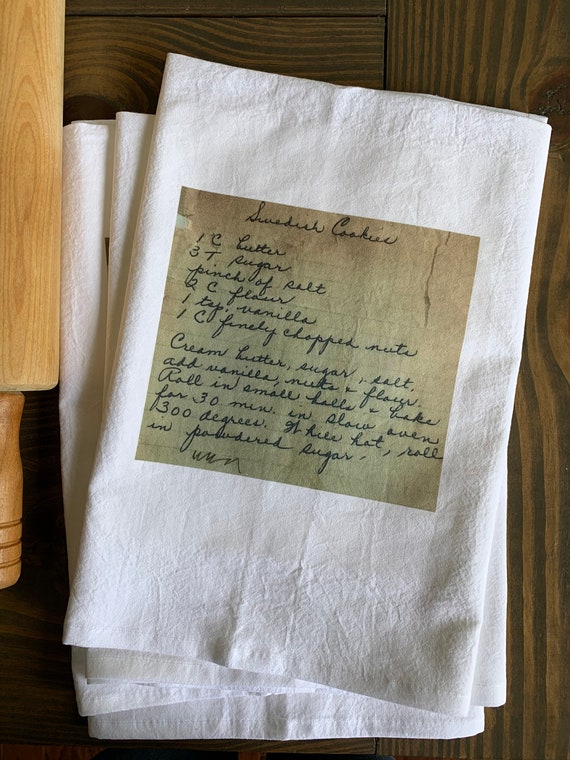 Swedish Cookies
1 C butter
3 T sugar
pinch of salt
2 C flour
1 tsp. vanilla
1 C finely chopped nuts
Cream butter, sugar, salt,
add vanilla, nuts & flour.
Roll in small balls & bake
for 30 min. in slow oven
300 degrees. While hot, roll
in powdered sugar.